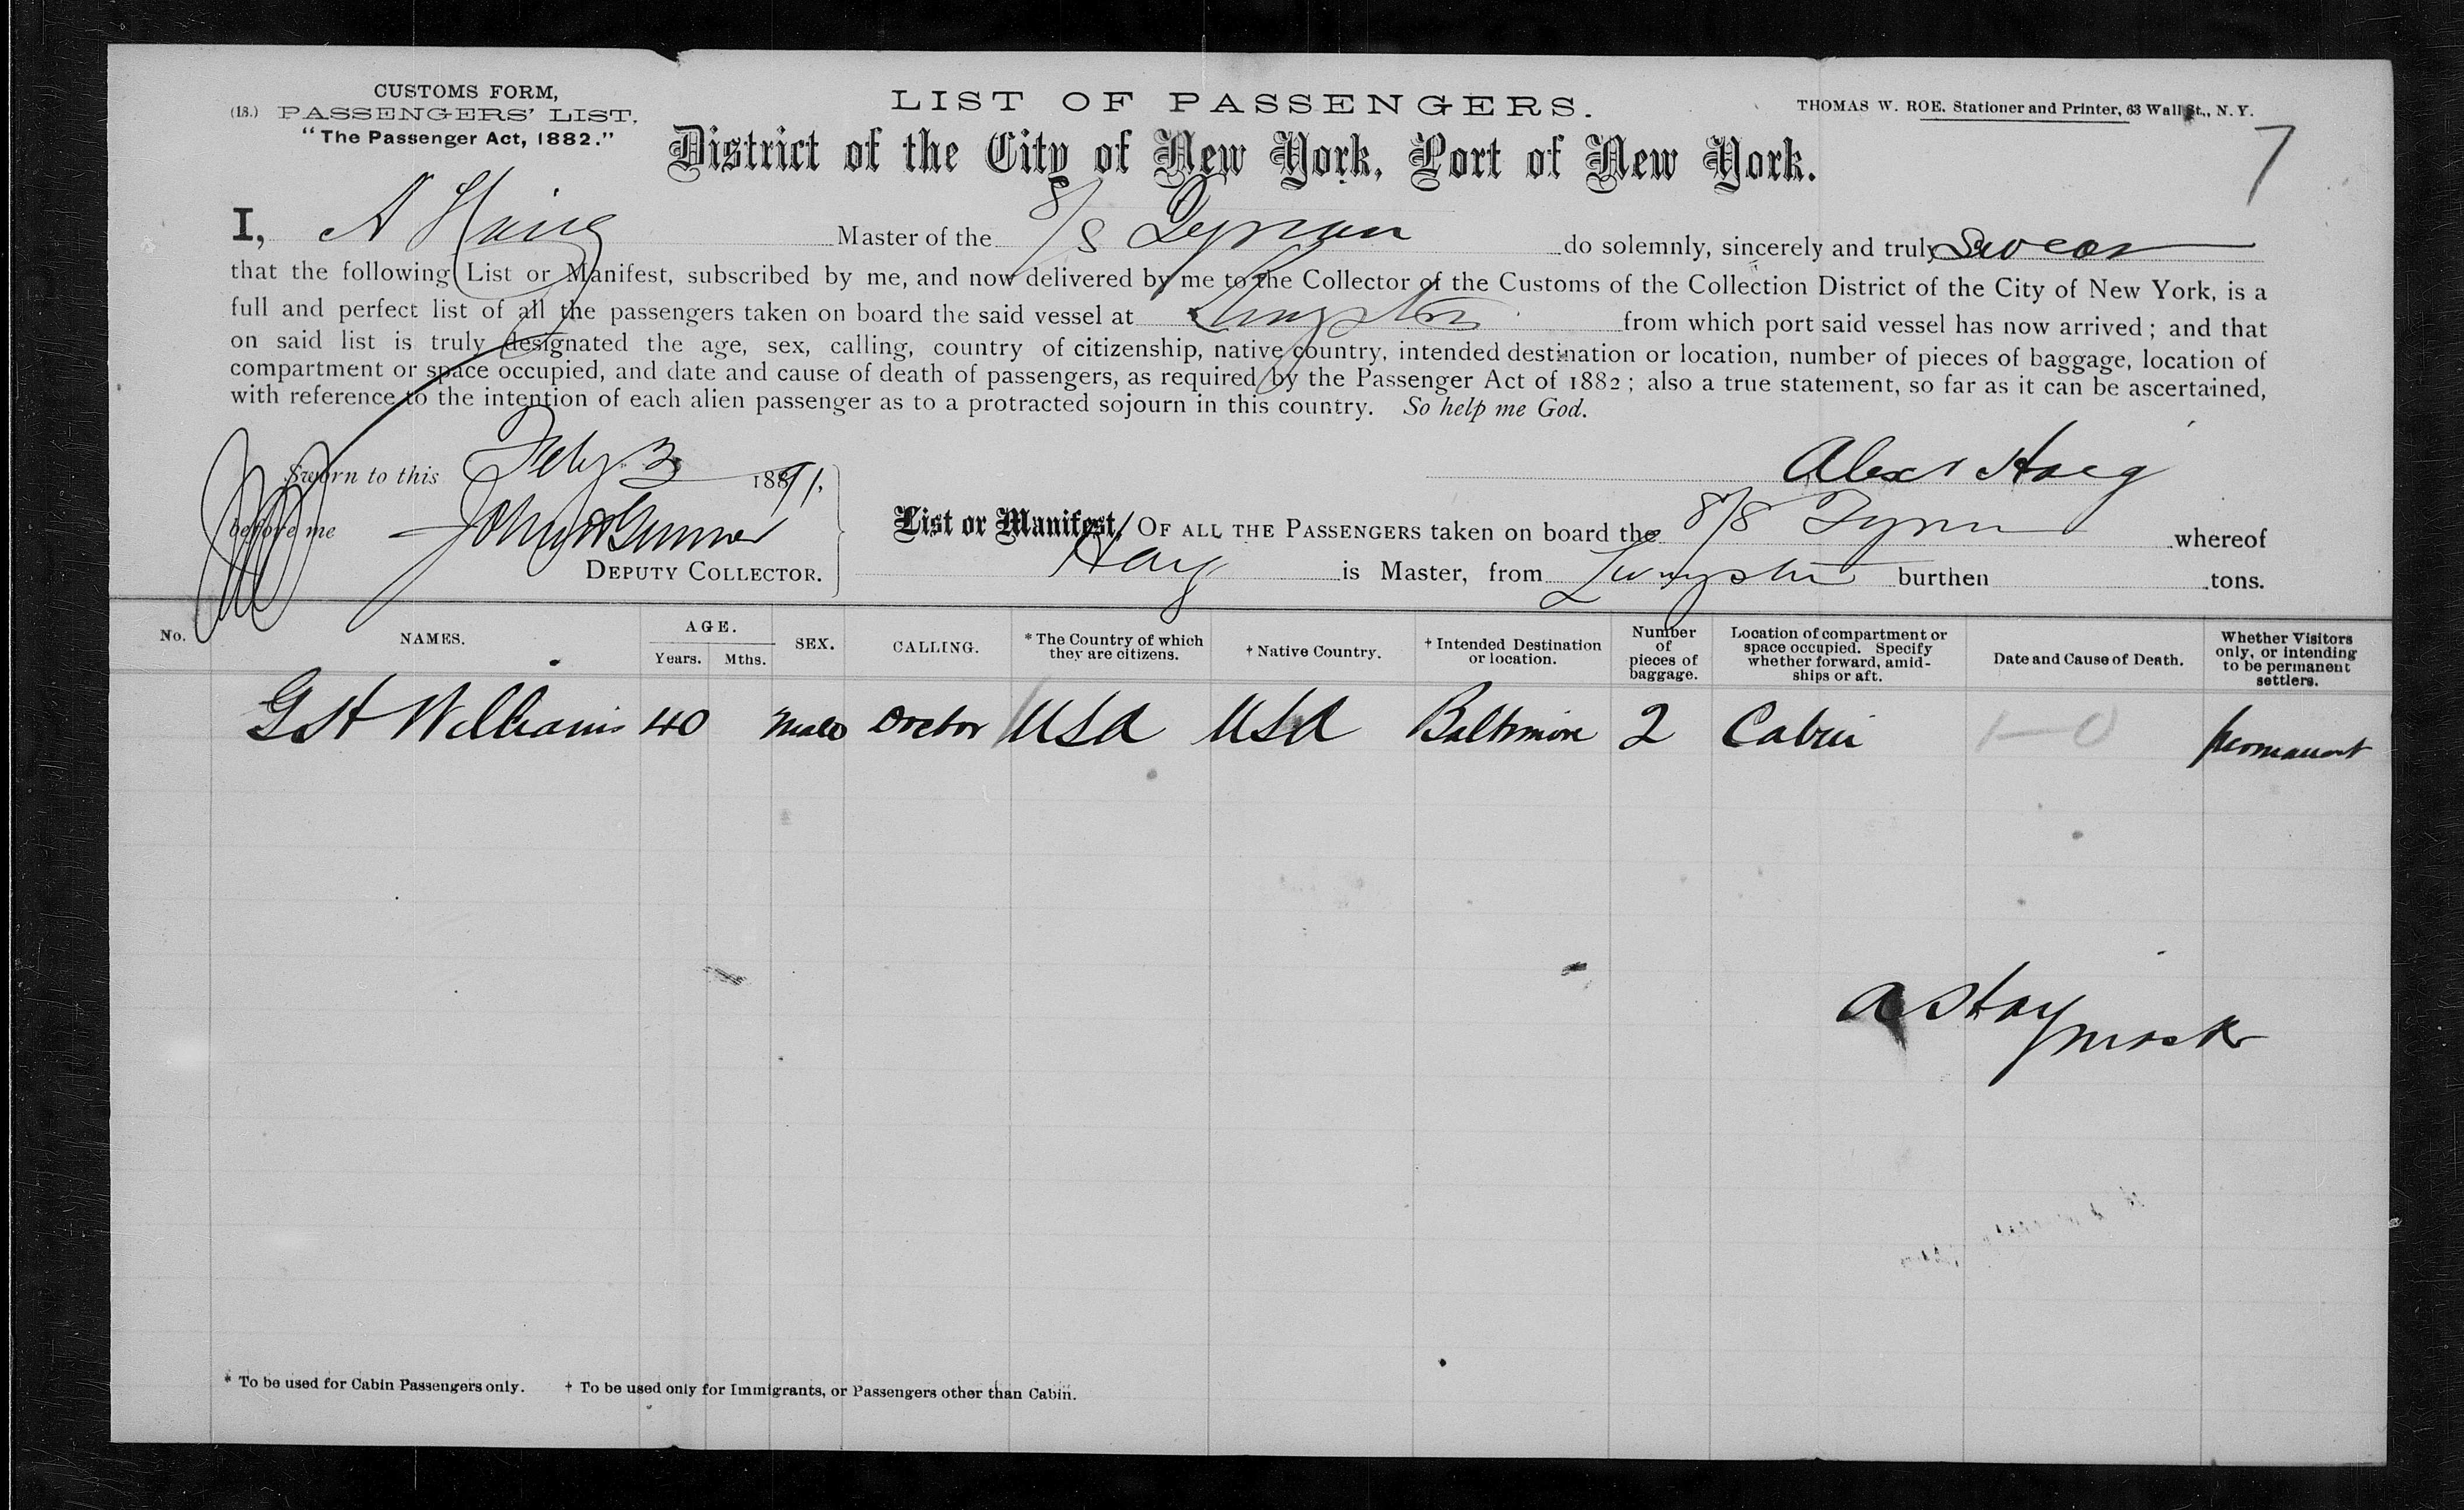 CUSTOMS FORM,
(18.) PASSENGERS' LIST.
"The Passenger Act, 1882."
LIST OF PASSENGERS.
THOMAS W. ROE, Stationer and Printer, 63 Wall St., N. Y.
7
District of the City of New York, Port of New York.
I, A Haig Master of the S/S do solemnly, sincerely and truly Swear
that the following List or Manifest, subscribed by me, and now delivered by me to the Collector of the Customs of the Collection District of the City of New York, is a
full and perfect list of all the passengers taken on board the said vessel at Kingston from which port said vessel has now arrived; and that
on said list is truly designated the age, sex, calling, country of citizenship, native country, intended destination or location, number of pieces of baggage, location of
compartment or space occupied, and date and cause of death of passengers, as required by the Passenger Act of 1882; also a true statement, so far as it can be ascertained,
with reference to the intention of each alien passenger as to a protracted sojourn in this country. So help me God.
Sworn to this Feby 3 1891.
Alexr Haig
before me
DEPUTY COLLECTOR.
List or Manifest, OF ALL THE PASSENGERS taken on board the S/S whereof
Haig is Master, from Kingston burthen tons.
No. NAMES. AGE. Years. Mths. SEX. CALLING. * The Country of which they are citizens. † Native Country. † Intended Destination or location. Number of pieces of baggage. Location of compartment or space occupied. Specify whether forward, amidships or aft. Date and Cause of Death. Whether Visitors only, or intending to be permanent settlers.
G H Williams 40 Male Doctor USA USA Baltimore 2 Cabin 1—0 permanent
A Haig
Master
* To be used for Cabin Passengers only. † To be used only for Immigrants, or Passengers other than Cabin.